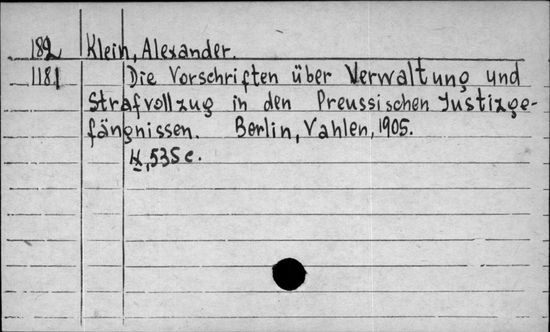 182 Klein, Alexander.
1181 Die Vorschriften über Verwaltung und
Strafvollzug in den Preussischen Justizge-
fängnissen. Berlin, Vahlen, 1905.
535 c.